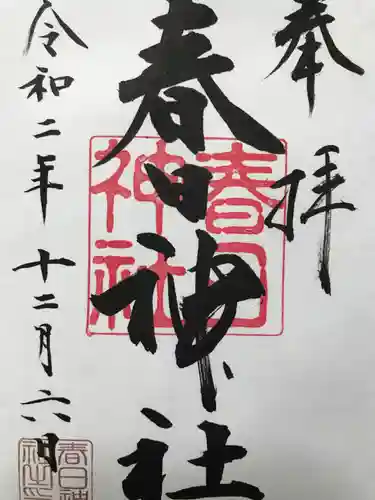 奉拝
春日神社
春日神社
令和二年十二月六日